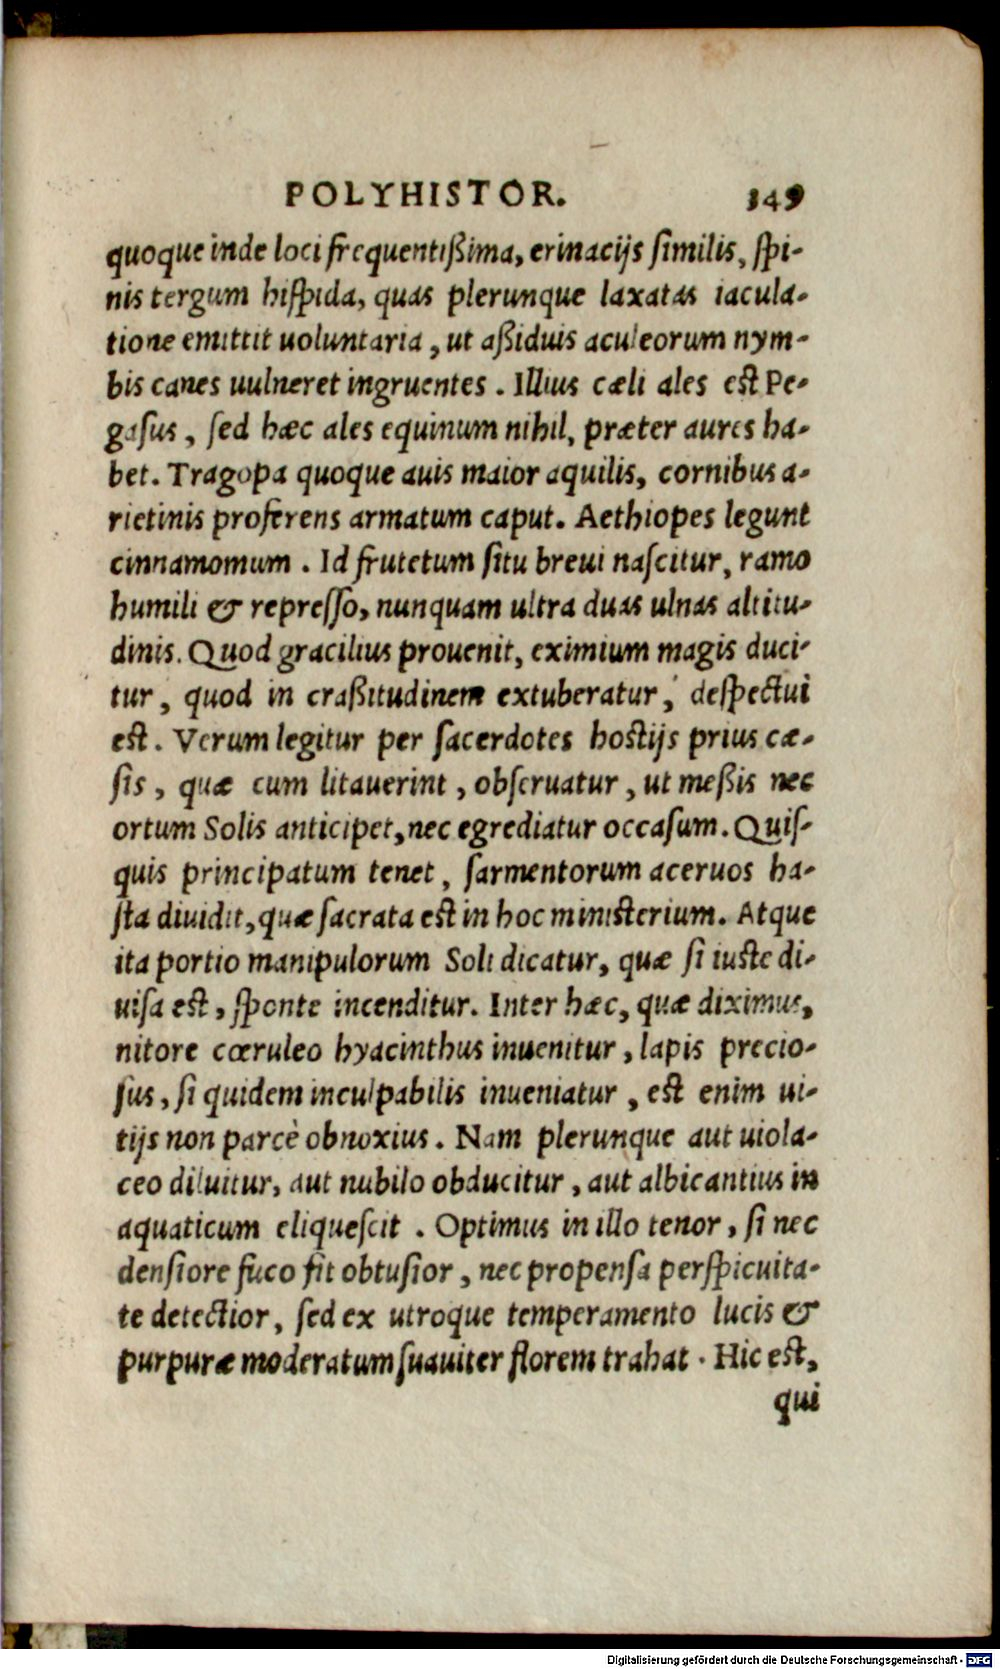 POLYHISTOR. 149
quoque inde loci frequentißima, erinacijs similis, spi-
nis tergum hispida, quas plerunque laxatas iacula-
tione emittit uoluntaria, ut aßiduis aculeorum nym-
bis canes uulneret ingruentes. Illius cæli ales est Pe-
gasus, sed hæc ales equinum nihil, præter aures ha-
bet. Tragopa quoque auis maior aquilis, cornibus a-
rietinis proferens armatum caput. Aethiopes legunt
cinnamomum. Id frutetum situ breui nascitur, ramo
humili & represso, nunquam ultra duas ulnas altitu-
dinis. Quod gracilius prouenit, eximium magis duci-
tur, quod in craßitudinem extuberatur, despectui
est. Verum legitur per sacerdotes hostijs prius cæ-
sis, quæ cum litauerint, obseruatur, ut meßis nec
ortum Solis anticipet, nec egrediatur occasum. Quis-
quis principatum tenet, sarmentorum aceruos ha-
sta diuidit, quæ sacrata est in hoc ministerium. Atque
ita portio manipulorum Soli dicatur, quæ si iuste di-
uisa est, sponte incenditur. Inter hæc, quæ diximus,
nitore cæruleo hyacinthus inuenitur, lapis precio-
sus, si quidem inculpabilis inueniatur, est enim ui-
tijs non parcè obnoxius. Nam plerunque aut uiola-
ceo diluitur, aut nubilo obducitur, aut albicantius in
aquaticum eliquescit. Optimus in illo tenor, si nec
densiore fuco fit obtusior, nec propensa perspicuita-
te detectior, sed ex utroque temperamento lucis &
purpuræ moderatum suauiter florem trahat. Hic est,
qui
Digitalisierung gefördert durch die Deutsche Forschungsgemeinschaft - DFG